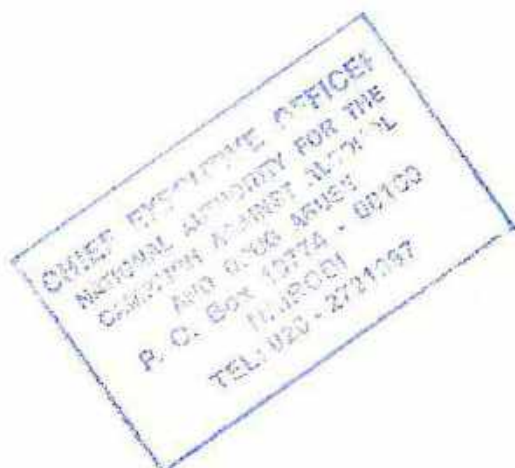 CHIEF EXECUTIVE OFFICER
NATIONAL AUTHORITY FOR THE
CAMPAIGN AGAINST ALCOHOL
AND DRUG ABUSE
P. O. Box 10774 - 00100
NAIROBI
TEL: 020 - 2721997